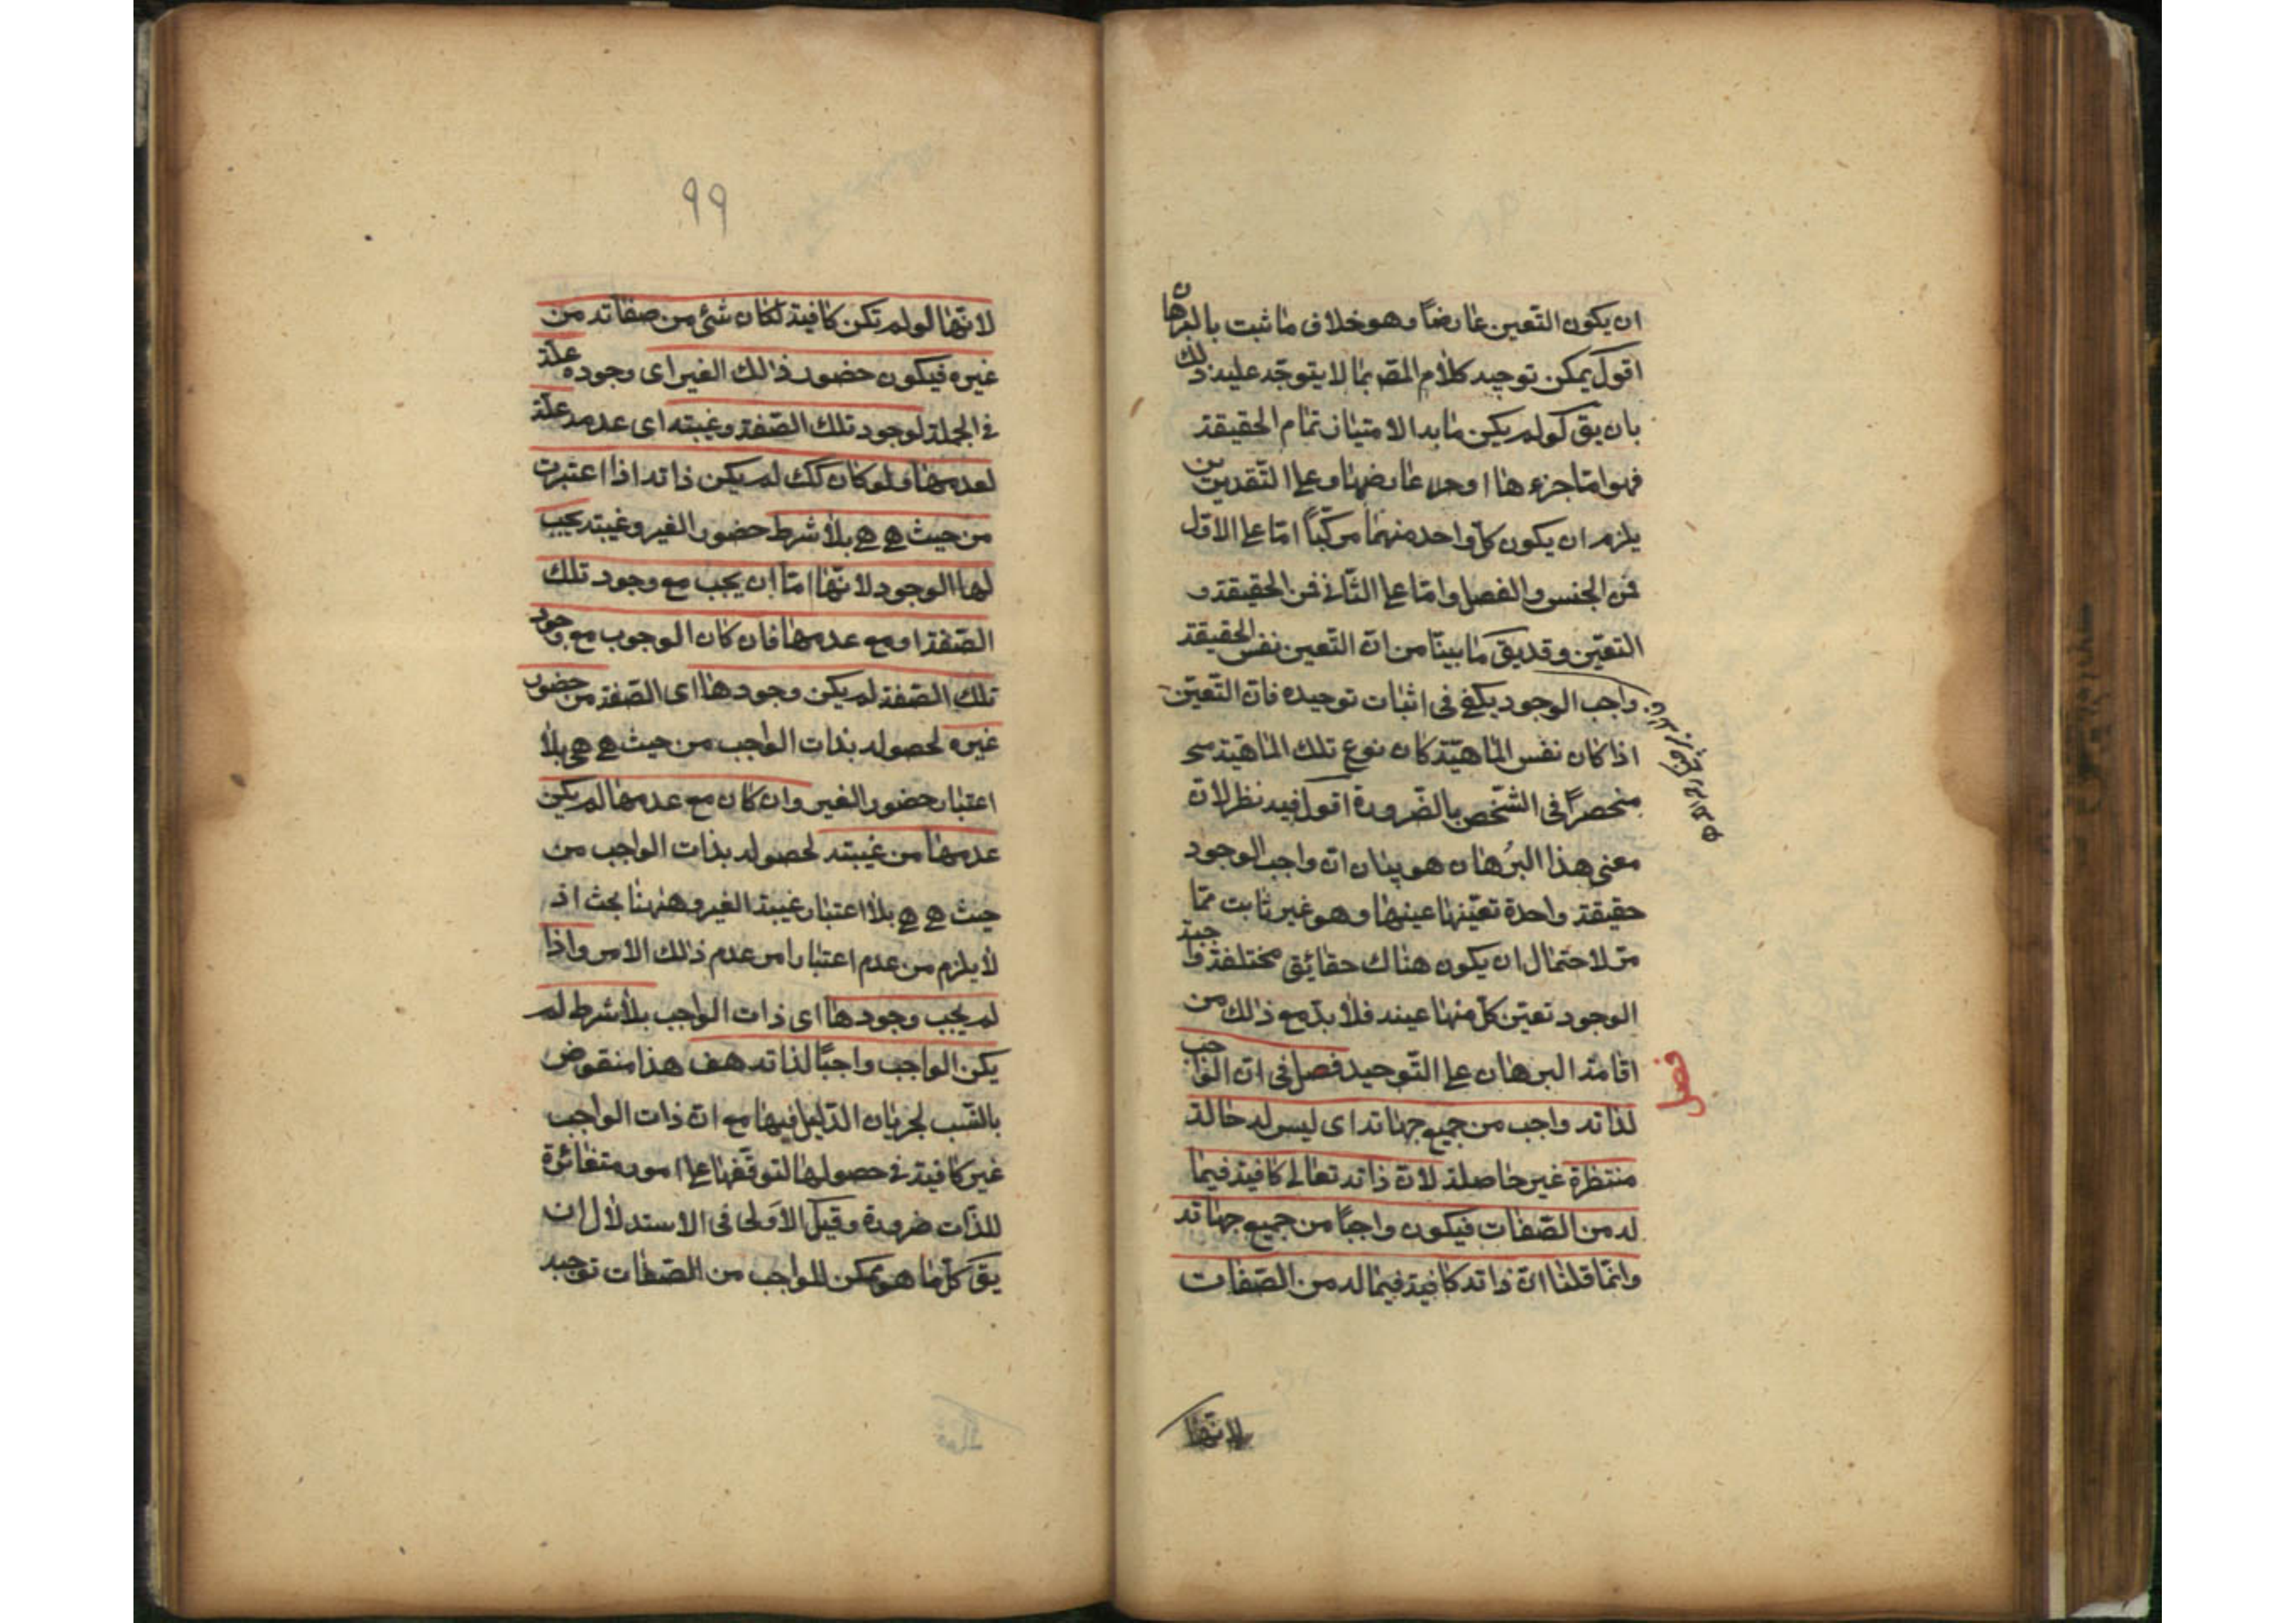 ان يكون التعين عارضاً وهو خلاف ما ثبت بالبرهان
اقول يمكن توجيه كلام المصـ بما لا يتوجّه عليه ذلك
بان يق لو لم يكن ما به الامتياز تمام الحقيقة
فهو امّا جزءها او عارضها وعلى التقديرين
يلزم ان يكون كلّ واحد منهما مركّباً امّا على الاوّل
فمن الجنس والفصل وامّا على الثّانى فمن الحقيقة و
التعيّن وقد يق ما بينّا من انّ التعين نفس الحقيقة
واجب الوجود يكفى فى اثبات توحيده فانّ التّعيّن
اذا كان نفس الماهيّة كان نوع تلك الماهيّة
منحصراً فى الشّخص بالضّرورة اقول فيه نظر لانّ
معنى هذا البرهان هو بيان انّ واجب الوجود
حقيقة واحدة تعيّنها عينها وهو غير ثابت ممّا
مرّ لاحتمال ان يكون هناك حقائق مختلفة واجبة
الوجود تعيّن كلّ منها عينه فلا بدّ مع ذلك من
اقامة البرهان على التّوحيد فصل فى انّ الواجب
فصل
لذاته واجب من جميع جهاته اى ليس له حالة
منتظرة غير حاصلة لانّ ذاته تعالى كافية فيما
له من الصّفات فيكون واجباً من جميع جهاته
وانّما قلنا انّ ذاته كافية فيما له من الصّفات
لانّها
٩٩
لانّها لو لم تكن كافية لكان شئ من صفاته من
غيره فيكون حضور ذالك الغير اى وجوده علّة
فى الجملة لوجود تلك الصّفة وغيبته اى عدمه علّة
لعدمها ولو كان كك لم يكن ذاته اذا اعتبرت
من حيث هى هى بلا شرط حضور الغير وغيبته يجب
لها الوجود لانّها امّا ان يجب مع وجود تلك
الصّفة او مع عدمها فان كان الوجوب مع وجود
تلك الصّفة لم يكن وجودها اى الصّفة من حضور
غيره لحصوله بذات الواجب من حيث هى هى بلا
اعتبار حضور الغير وان كان مع عدمها لم يكن
عدمها من غيبته لحصوله بذات الواجب من
حيث هى هى بلا اعتبار غيبة الغير وههنا بحث اذ
لا يلزم من عدم اعتبار امر عدم ذلك الامر واذا
لم يجب وجودها اى ذات الواجب بلا شرط لم
يكن الواجب واجبًا لذاته هف هذا منقوض
بالنّسب لجريان الدّليل فيها مع انّ ذات الواجب
غير كافية فى حصولها لتوقّفها على امور متغائرة
للذّات ضرورة وقيل الاَولى فى الاستدلال ان
يق كلّ ما هو ممكن للواجب من الصّفات توجبه